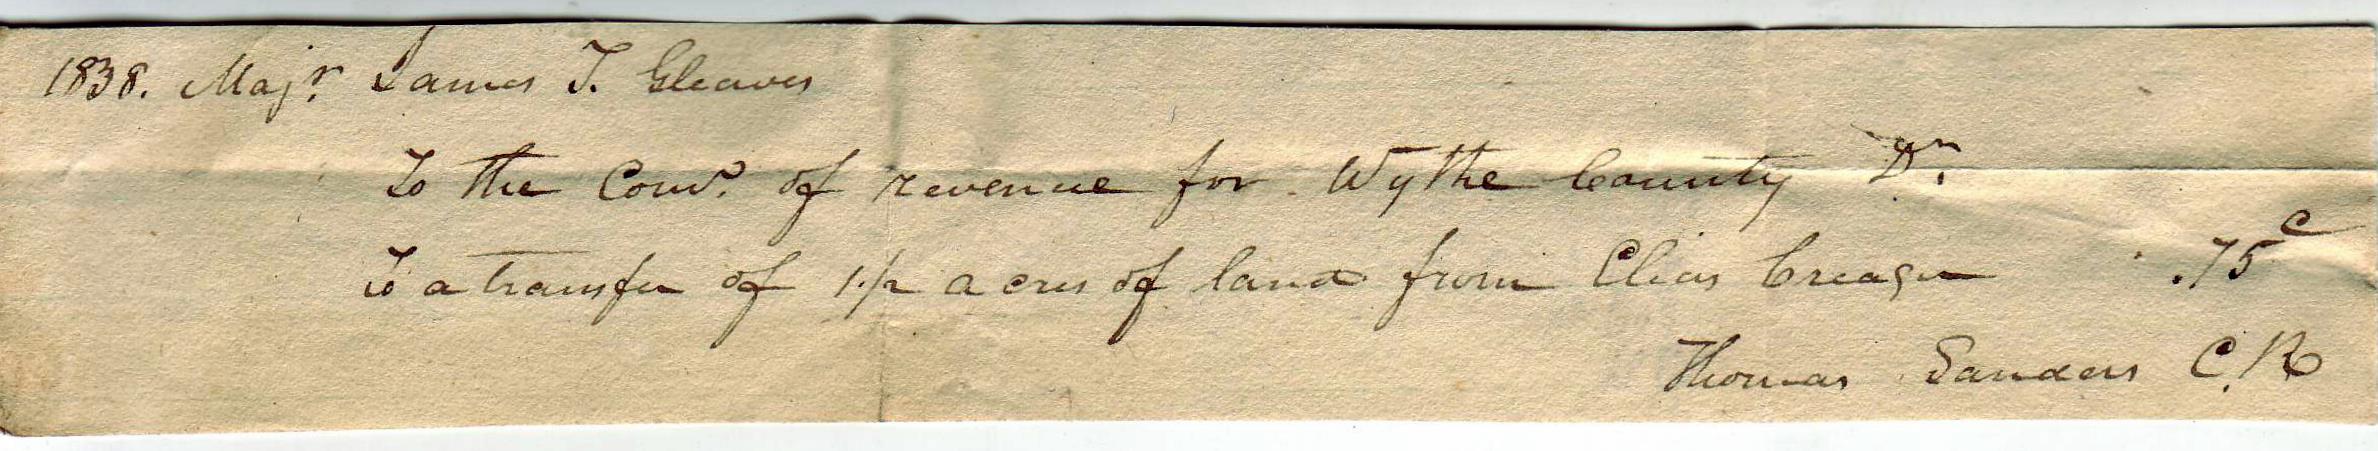 1838. Majr. James T. Gleaves
To the Comr. of revenue for Wythe County Dr.
To a transfer of 1 1/2 acres of land from Elias Creager .75c
Thomas Sanders C.R